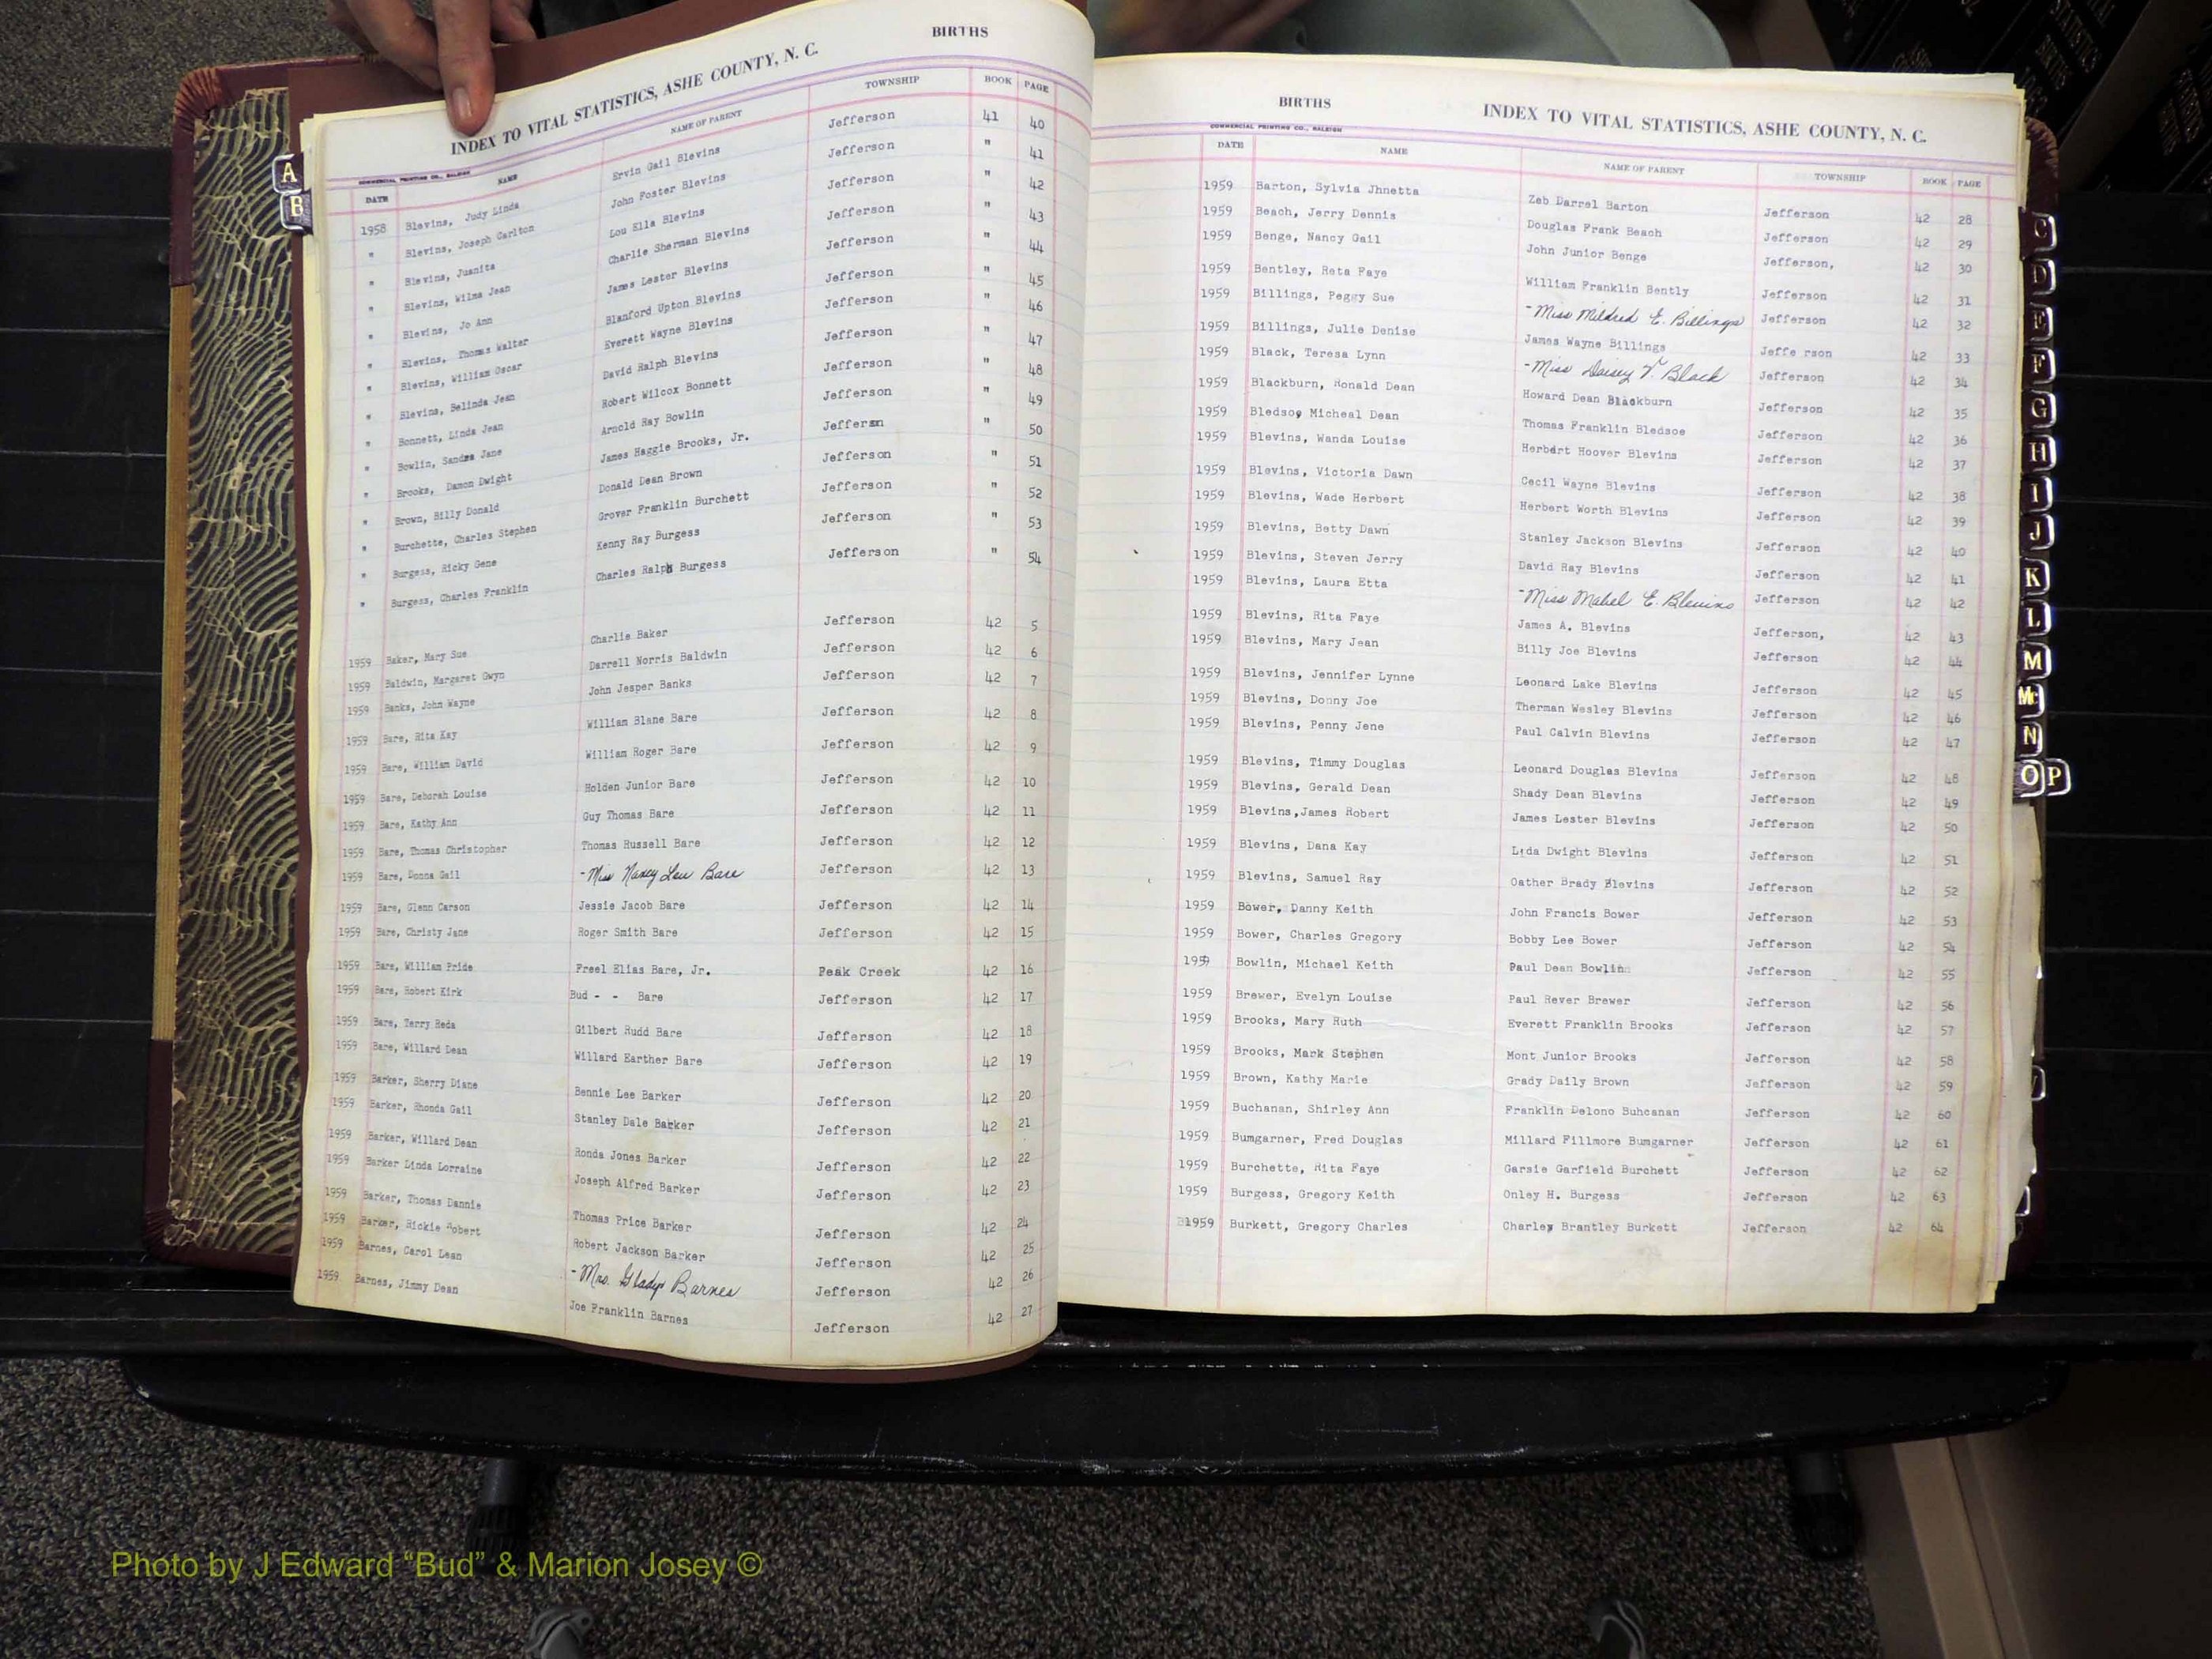 BIRTHS
INDEX TO VITAL STATISTICS, ASHE COUNTY, N. C.
COMMERCIAL PRINTING CO., RALEIGH
DATE NAME NAME OF PARENT TOWNSHIP BOOK PAGE
1958 Blevins, Judy Linda Ervin Gail Blevins Jefferson 41 40
" Blevins, Joseph Carlton John Foster Blevins Jefferson " 41
" Blevins, Juanita Lou Ella Blevins Jefferson " 42
" Blevins, Wilma Jean Charlie Sherman Blevins Jefferson " 43
" Blevins, Jo Ann James Lester Blevins Jefferson " 44
" Blevins, Thomas Walter Blanford Upton Blevins Jefferson " 45
" Blevins, William Oscar Everett Wayne Blevins Jefferson " 46
" Blevins, Belinda Jean David Ralph Blevins Jefferson " 47
" Bonnett, Linda Jean Robert Wilcox Bonnett Jefferson " 48
" Bowlin, Sandra Jane Arnold Ray Bowlin Jefferson " 49
" Brooks, Damon Dwight James Haggie Brooks, Jr. Jefferson " 50
" Brown, Billy Donald Donald Dean Brown Jefferson " 51
" Burchette, Charles Stephen Grover Franklin Burchett Jefferson " 52
" Burgess, Ricky Gene Kenny Ray Burgess Jefferson " 53
" Burgess, Charles Franklin Charles Ralph Burgess Jefferson " 54
1959 Baker, Mary Sue Charlie Baker Jefferson 42 5
1959 Baldwin, Margaret Gwyn Darrell Norris Baldwin Jefferson 42 6
1959 Banks, John Wayne John Jesper Banks Jefferson 42 7
1959 Bare, Rita Kay William Blane Bare Jefferson 42 8
1959 Bare, William David William Roger Bare Jefferson 42 9
1959 Bare, Deborah Louise Holden Junior Bare Jefferson 42 10
1959 Bare, Kathy Ann Guy Thomas Bare Jefferson 42 11
1959 Bare, Thomas Christopher Thomas Russell Bare Jefferson 42 12
1959 Bare, Donna Gail - Miss Nancy Lou Bare Jefferson 42 13
1959 Bare, Glenn Carson Jessie Jacob Bare Jefferson 42 14
1959 Bare, Christy Jane Roger Smith Bare Jefferson 42 15
1959 Bare, William Pride Freel Elias Bare, Jr. Peak Creek 42 16
1959 Bare, Robert Kirk Bud - - Bare Jefferson 42 17
1959 Bare, Terry Reda Gilbert Rudd Bare Jefferson 42 18
1959 Bare, Willard Dean Willard Earther Bare Jefferson 42 19
1959 Barker, Sherry Diane Bennie Lee Barker Jefferson 42 20
1959 Barker, Rhonda Gail Stanley Dale Barker Jefferson 42 21
1959 Barker, Willard Dean Ronda Jones Barker Jefferson 42 22
1959 Barker Linda Lorraine Joseph Alfred Barker Jefferson 42 23
1959 Barker, Thomas Dannie Thomas Price Barker Jefferson 42 24
1959 Barker, Rickie Robert Robert Jackson Barker Jefferson 42 25
1959 Barnes, Carol Lean - Mrs. Gladys Barnes Jefferson 42 26
1959 Barnes, Jimmy Dean Joe Franklin Barnes Jefferson 42 27
BIRTHS INDEX TO VITAL STATISTICS, ASHE COUNTY, N. C.
COMMERCIAL PRINTING CO., RALEIGH
DATE NAME NAME OF PARENT TOWNSHIP BOOK PAGE
1959 Barton, Sylvia Jhnetta Zeb Darrel Barton Jefferson 42 28
1959 Beach, Jerry Dennis Douglas Frank Beach Jefferson 42 29
1959 Benge, Nancy Gail John Junior Benge Jefferson, 42 30
1959 Bentley, Reta Faye William Franklin Bently Jefferson 42 31
1959 Billings, Peggy Sue - Miss Mildred E. Billings Jefferson 42 32
1959 Billings, Julie Denise James Wayne Billings Jeffe rson 42 33
1959 Black, Teresa Lynn - Miss Daisey V. Black Jefferson 42 34
1959 Blackburn, Ronald Dean Howard Dean Blackburn Jefferson 42 35
1959 Bledsoe Micheal Dean Thomas Franklin Bledsoe Jefferson 42 36
1959 Blevins, Wanda Louise Herbert Hoover Blevins Jefferson 42 37
1959 Blevins, Victoria Dawn Cecil Wayne Blevins Jefferson 42 38
1959 Blevins, Wade Herbert Herbert Worth Blevins Jefferson 42 39
1959 Blevins, Betty Dawn Stanley Jackson Blevins Jefferson 42 40
1959 Blevins, Steven Jerry David Ray Blevins Jefferson 42 41
1959 Blevins, Laura Etta - Miss Mabel E. Blevins Jefferson 42 42
1959 Blevins, Rita Faye James A. Blevins Jefferson, 42 43
1959 Blevins, Mary Jean Billy Joe Blevins Jefferson 42 44
1959 Blevins, Jennifer Lynne Leonard Lake Blevins Jefferson 42 45
1959 Blevins, Donny Joe Therman Wesley Blevins Jefferson 42 46
1959 Blevins, Penny Jene Paul Calvin Blevins Jefferson 42 47
1959 Blevins, Timmy Douglas Leonard Douglas Blevins Jefferson 42 48
1959 Blevins, Gerald Dean Shady Dean Blevins Jefferson 42 49
1959 Blevins,James Robert James Lester Blevins Jefferson 42 50
1959 Blevins, Dana Kay Dwight Blevins Jefferson 42 51
1959 Blevins, Samuel Ray Oather Brady Blevins Jefferson 42 52
1959 Bower, Danny Keith John Francis Bower Jefferson 42 53
1959 Bower, Charles Gregory Bobby Lee Bower Jefferson 42 54
1959 Bowlin, Michael Keith Paul Dean Bowlin Jefferson 42 55
1959 Brewer, Evelyn Louise Paul Rever Brewer Jefferson 42 56
1959 Brooks, Mary Ruth Everett Franklin Brooks Jefferson 42 57
1959 Brooks, Mark Stephen Mont Junior Brooks Jefferson 42 58
1959 Brown, Kathy Marie Grady Daily Brown Jefferson 42 59
1959 Buchanan, Shirley Ann Franklin Delono Buhcanan Jefferson 42 60
1959 Bumgarner, Fred Douglas Millard Fillmore Bumgarner Jefferson 42 61
1959 Burchette, Rita Faye Garsie Garfield Burchett Jefferson 42 62
1959 Burgess, Gregory Keith Onley H. Burgess Jefferson 42 63
1959 Burkett, Gregory Charles Charley Brantley Burkett Jefferson 42 64
A
B
C
D
E
F
G
H
I
J
K
L
M
Mc
N
O P
Photo by J Edward “Bud” & Marion Josey ©